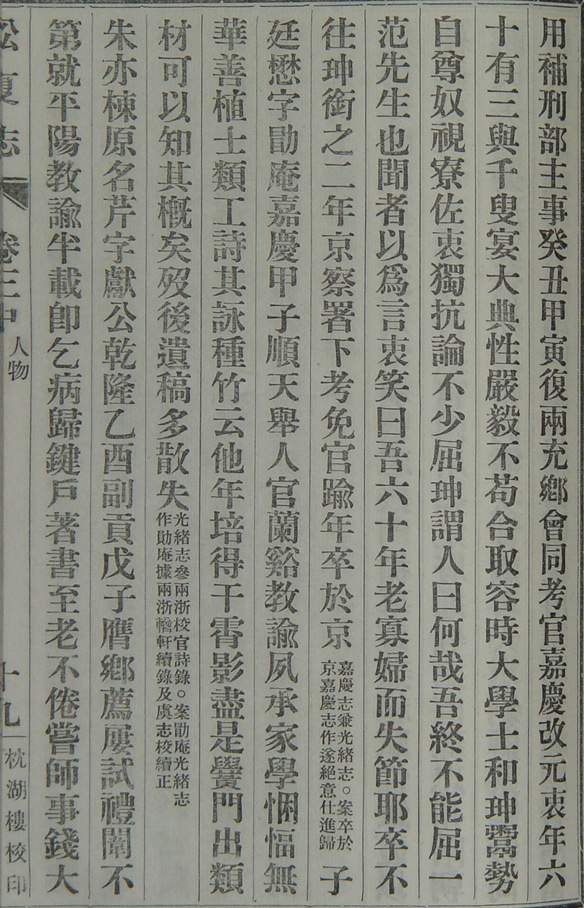 用補刑部主事癸丑甲寅復兩充鄉會同考官嘉慶改元衷年六
十有三與千叟宴大典性嚴毅不苟合取容時大學士和珅鬻勢
自尊奴視寮佐衷獨抗論不少屈珅謂人曰何哉吾終不能屈一
范先生也聞者以爲言衷笑曰吾六十年老寡婦而失節耶卒不
往珅銜之二年京察署下考免官踰年卒於京嘉慶志兼光緒志○案卒於京嘉慶志作遂絕意仕進歸子
廷懋字勖庵嘉慶甲子順天舉人官蘭谿教諭夙承家學悃愊無
華善植士類工詩其詠種竹云他年培得干霄影盡是黌門出類
材可以知其槪矣歿後遺稿多散失光緒志叄兩浙校官詩錄○案勖庵光緒志作勛庵據兩浙輶軒續錄及虞志校續正
朱亦棟原名芹字獻公乾隆乙酉副貢戊子膺鄉薦屢試禮闈不
第就平陽教諭半載卽乞病歸鍵戶著書至老不倦嘗師事錢大
松夏志
卷三中
人物
十九
枕湖樓校印